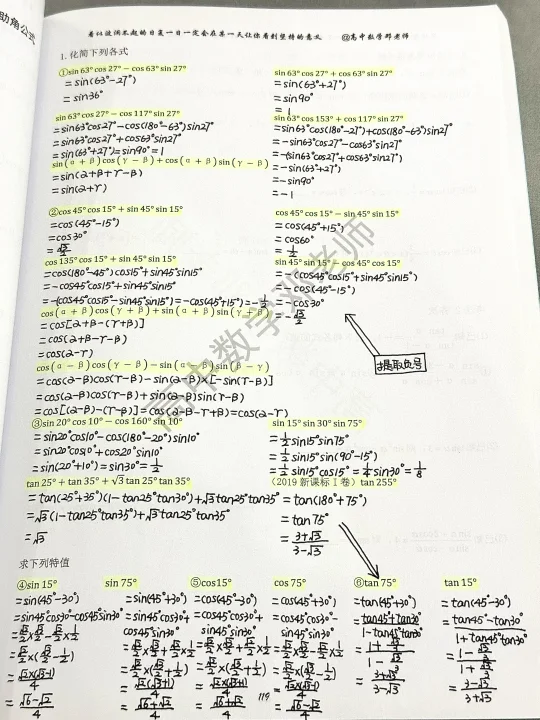 助角公式
看似波澜不起的日复一日一定会在某一天让你看到坚持的意义 @高中数学邓老师
1.化简下列各式
①sin 63° cos 27° − cos 63° sin 27°
=sin(63°−27°)
=sin36°
sin 63° cos 27° + cos 63° sin 27°
=sin(63°+27°)
=sin90°
=1
sin 63° cos 27° − cos 117° sin 27°
=sin63°cos27°−cos(180°−63°)sin27°
=sin63°cos27°+cos63°sin27°
=sin(63°+27°)=sin90°=1
sin 63° cos 153° + cos 117° sin 27°
=sin63°cos(180°−27°)+cos(180°−63°)sin27°
=−sin63°cos27°−cos63°sin27°
=−(sin63°cos27°+cos63°sin27°)
=−sin(63°+27°)
=−sin90°
=−1
sin(α+β)cos(γ−β)+cos(α+β)sin(γ−β)
=sin(α+β+γ−β)
=sin(α+γ)
②cos 45° cos 15° + sin 45° sin 15°
=cos(45°−15°)
=cos30°
=√3/2
cos 45° cos 15° − sin 45° sin 15°
=cos(45°+15°)
=cos60°
=1/2
cos 135° cos 15° + sin 45° sin 15°
=cos(180°−45°)cos15°+sin45°sin15°
=−cos45°cos15°+sin45°sin15°
=−(cos45°cos15°−sin45°sin15°)=−cos(45°+15°)=−1/2
sin 45° sin 15° − cos 45° cos 15°
=−(cos45°cos15°+sin45°sin15°)
=−cos(45°−15°)
=−cos30°
=−√3/2
提取负号
cos(α+β)cos(γ+β)+sin(α+β)sin(γ+β)
=cos[α+β−(γ+β)]
=cos(α+β−γ−β)
=cos(α−γ)
cos(α−β)cos(γ−β)−sin(α−β)sin(β−γ)
=cos(α−β)cos(γ−β)−sin(α−β)×[−sin(γ−β)]
=cos(α−β)cos(γ−β)+sin(α−β)sin(γ−β)
=cos[(α−β)−(γ−β)]=cos(α−β−γ+β)=cos(α−γ)
③sin 20° cos 10° − cos 160° sin 10°
=sin20°cos10°−cos(180°−20°)sin10°
=sin20°cos10°+cos20°sin10°
=sin(20°+10°)=sin30°=1/2
sin 15° sin 30° sin 75°
=1/2sin15°sin75°
=1/2sin15°sin(90°−15°)
=1/2sin15°cos15°=1/4sin30°=1/8
tan 25° + tan 35° + √3 tan 25° tan 35°
=tan(25°+35°)(1−tan25°tan35°)+√3tan25°tan35°
=√3(1−tan25°tan35°)+√3tan25°tan35°
=√3
(2019 新课标Ⅰ卷) tan 255°
=tan(180°+75°)
=tan75°
=3+√3/3−√3
求下列特值
④sin 15°
=sin(45°−30°)
=sin45°cos30°−cos45°sin30°
=√2/2×√3/2−√2/2×1/2
=√2/2×(√3/2−1/2)
=√2×(√3−1)/4
=√6−√2/4
sin 75°
=sin(45°+30°)
=sin45°cos30°+
cos45°sin30°
=√2/2×√3/2+√2/2×1/2
=√2/2×(√3/2+1/2)
=√2(√3+1)/4
=√6+√2/4
⑤cos15°
=cos(45°−30°)
=cos45°cos30°+
sin45°sin30°
=√2/2×√3/2+√2/2×1/2
=√2/2×(√3/2+1/2)
=√2×(√3+1)/4
=√6+√2/4
cos 75°
=cos(45°+30°)
=cos45°cos30°−
sin45°sin30°
=√2/2×√3/2−√2/2×1/2
=√2/2×(√3/2−1/2)
=√2×(√3−1)/4
=√6−√2/4
⑥tan 75°
=tan(45°+30°)
=tan45°+tan30°/1−tan45°tan30°
=1+√3/3/1−√3/3
=3+√3/3−√3
tan 15°
=tan(45°−30°)
=tan45°−tan30°/1+tan45°tan30°
=1−√3/3/1+√3/3
=3−√3/3+√3
119
高中数学邓老师